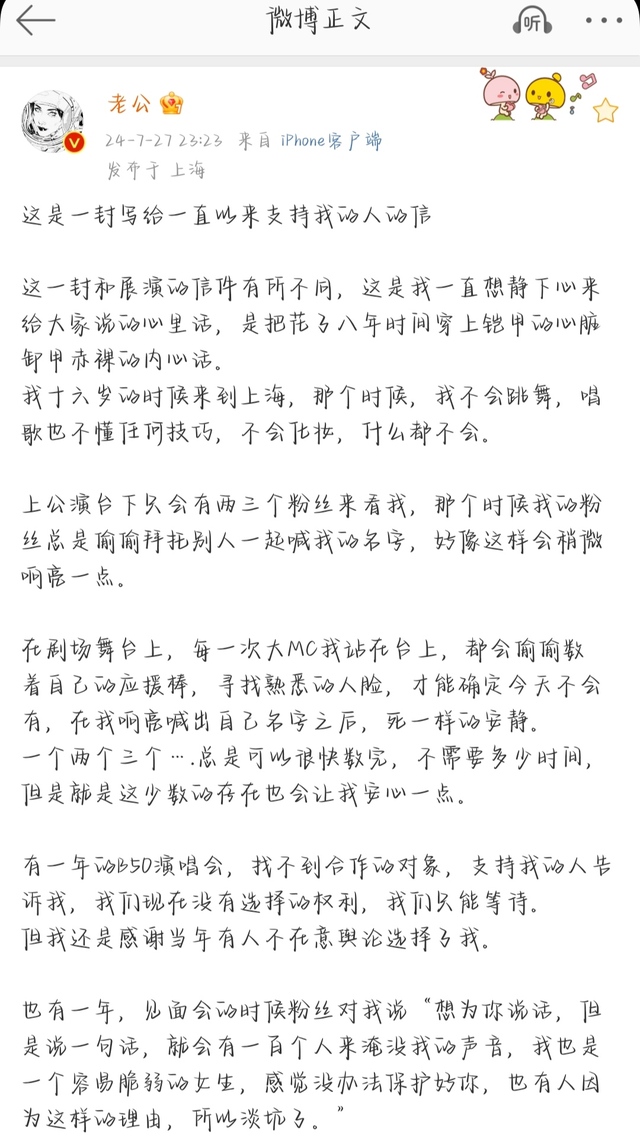 微博正文
听
老公
24-7-27 23:23 来自 iPhone客户端
发布于 上海
这是一封写给一直以来支持我的人的信
这一封和展演的信件有所不同，这是我一直想静下心来
给大家说的心里话，是把花了八年时间穿上铠甲的心脏
卸甲赤裸的内心话。
我十六岁的时候来到上海，那个时候，我不会跳舞，唱
歌也不懂任何技巧，不会化妆，什么都不会。
上公演台下只会有两三个粉丝来看我，那个时候我的粉
丝总是偷偷拜托别人一起喊我的名字，好像这样会稍微
响亮一点。
在剧场舞台上，每一次大MC我站在台上，都会偷偷数
着自己的应援棒，寻找熟悉的人脸，才能确定今天不会
有，在我响亮喊出自己名字之后，死一样的安静。
一个两个三个….总是可以很快数完，不需要多少时间，
但是就是这少数的存在也会让我安心一点。
有一年的B50演唱会，找不到合作的对象，支持我的人告
诉我，我们现在没有选择的权利，我们只能等待。
但我还是感谢当年有人不在意舆论选择了我。
也有一年，见面会的时候粉丝对我说“想为你说话，但
是说一句话，就会有一百个人来淹没我的声音，我也是
一个容易脆弱的女生，感觉没办法保护好你，也有人因
为这样的理由，所以淡坑了。”